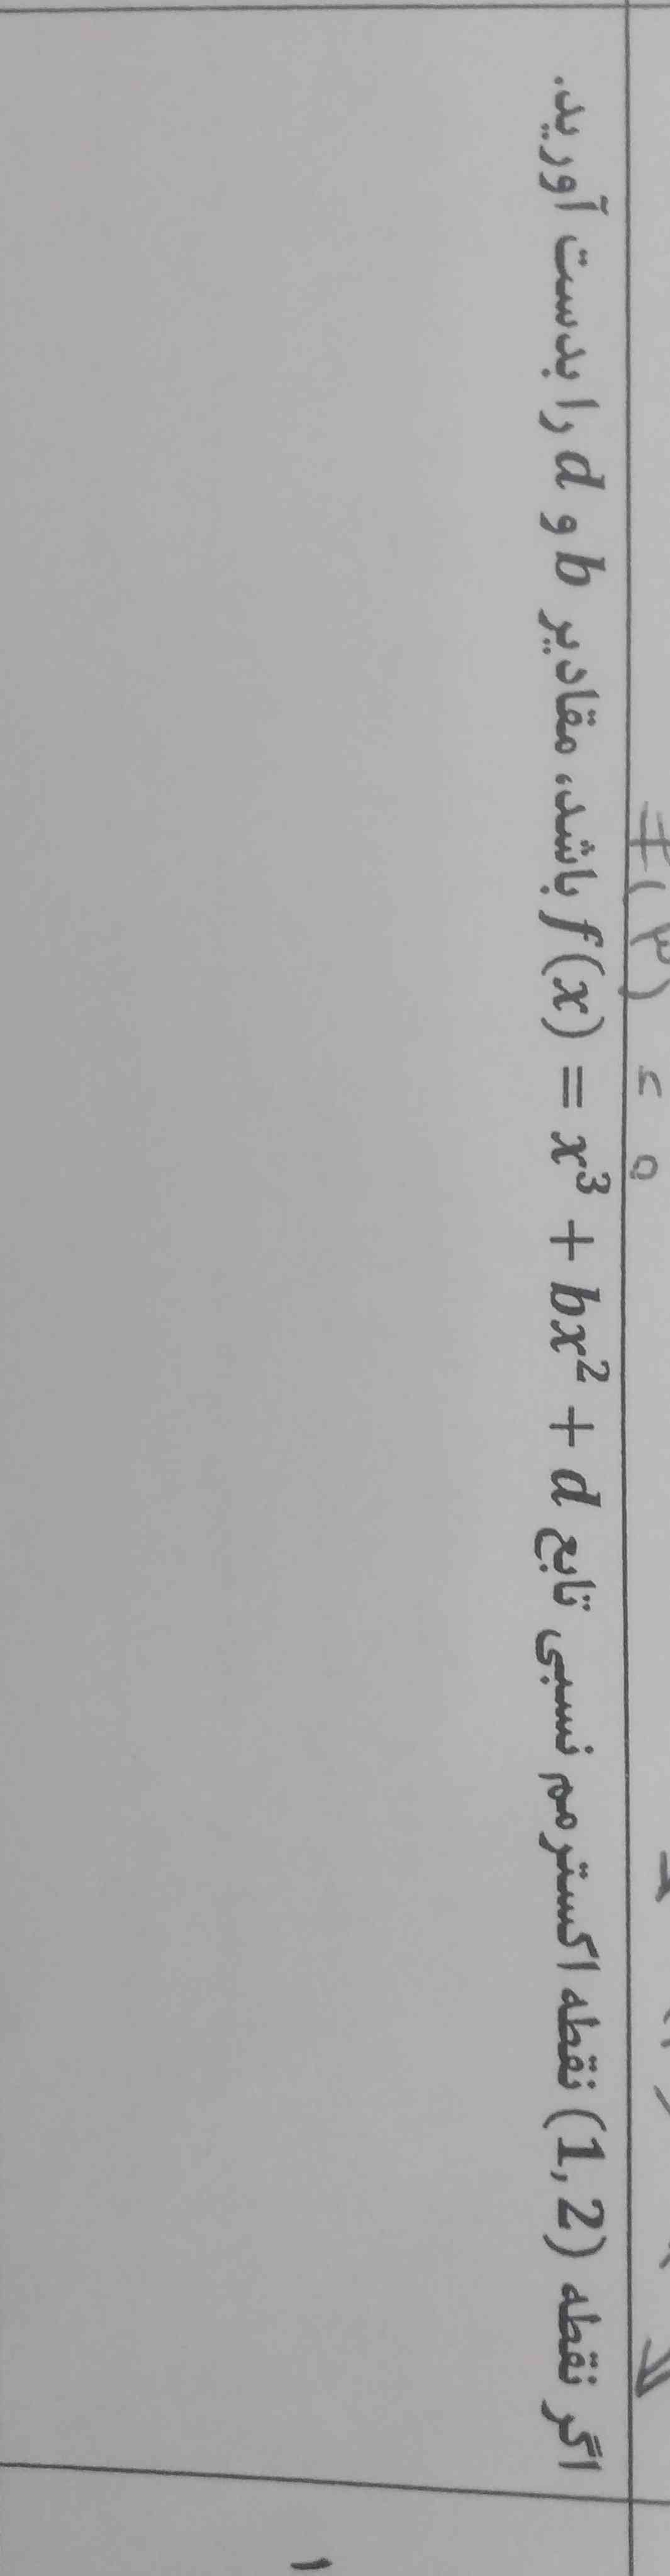 f(۳) = ۵
اگر نقطه (1, 2) نقطه اکسترمم نسبی تابع f(x) = x³ + bx² + d باشد، مقادیر b و d را بدست آورید.
۱